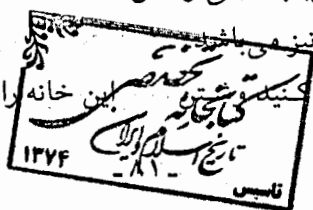 نیز می باشد
کنید
این خانه را
کتابخانه تخصصی
تاریخ اسلام و ایران
- ۸۱ -
۱۳۷۴
تاسیس